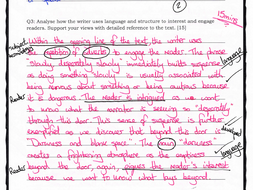 2
15mins
Q3: Analyse how the writer uses language and structure to interest and engage
readers. Support your views with detailed reference to the text. [15]
Within the opening line of the text, the writer uses
the repetition of adverbs to engage the reader. The phrase
"slowly, desperately slowly" immediately builds suspense
as doing something slowly is usually associated with
being nervous about something or being cautious because
it is dangerous. The reader is intrigued as we want
to know what the narrator is seeing so "desperately"
through this door. This sense of suspense is further
as we discover that beyond this door is
"Darkness and blank space". The noun "darkness"
creates a frightening atmosphere as the
beyond the door, again, piques the reader's interest
because we want to know what lays beyond
Reader
Reader
language
language